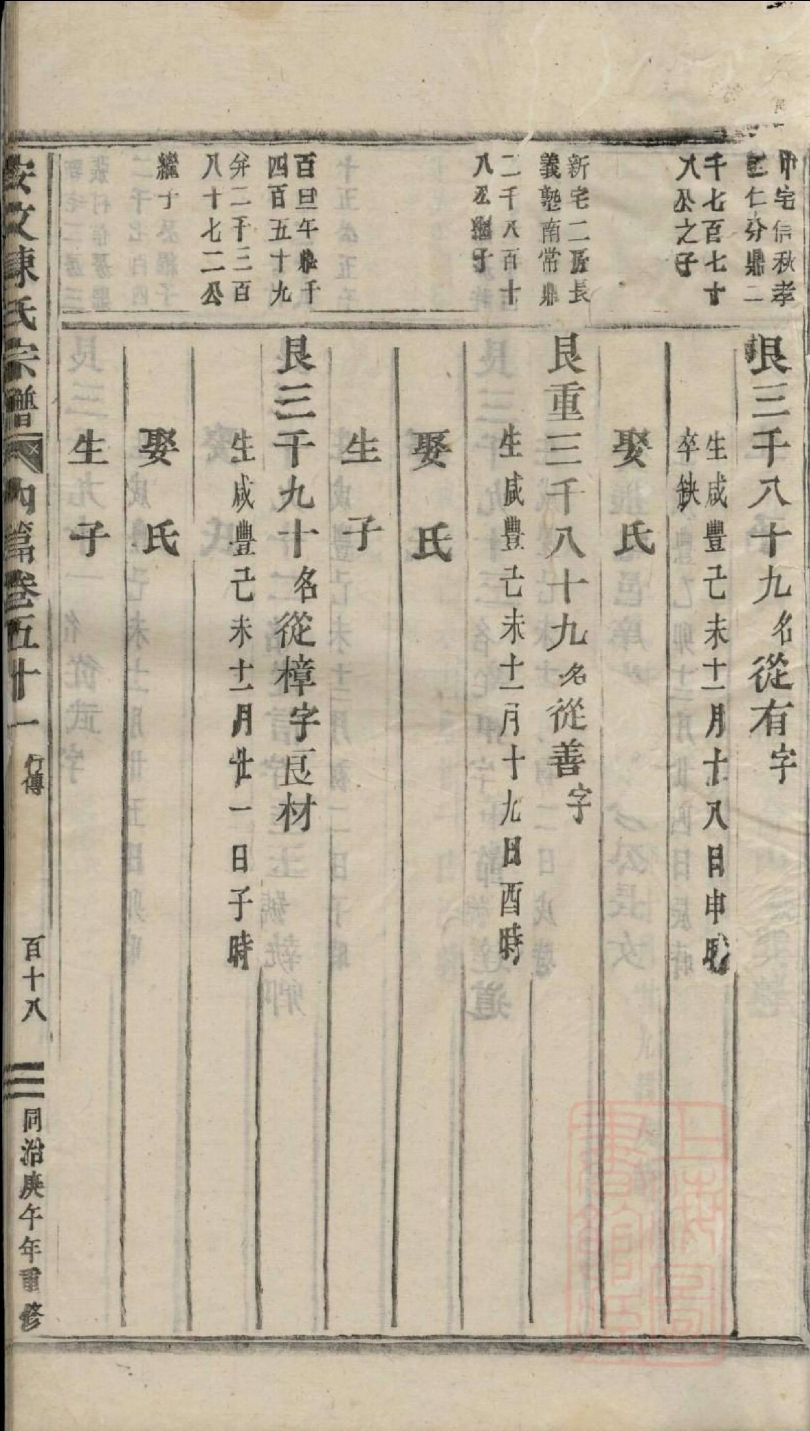 宅信秋孝
仁分鼎二
千七百七十
八公之子
艮三千八十九名從有字
生咸豐己未十一月十八日申時
卒缺
娶氏
新宅二房長
義塾南常鼎
二千八百十
八公繼子
艮重三千八十九名從善字
生咸豐己未十一月十九日酉時
娶氏
生子
百旦午鼎千
四百五十九
弁二千三百
八十七二公
繼子
艮三千九十名從樟字艮材
生咸豐己未十一月廿一日子時
娶氏
生子
安文陳氏宗譜 內篇卷五十一 行傳 百十八 同治庚午年重修